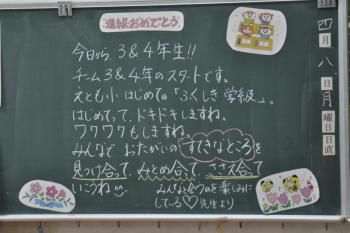 進級おめでとう
今日から、3&4年生!!
チーム3&4年のスタートです。
えとも小はじめての「ふくしき学級」。
はじめてって、ドキドキしますね。
ワクワクもしますね。
みんなで おたがいの すてきなところを
見つけ合って、みとめ合って、ささえ合って
いこうね
みんなと会うのを楽しみに
している♡先生より
四月
八日
月曜日
日直